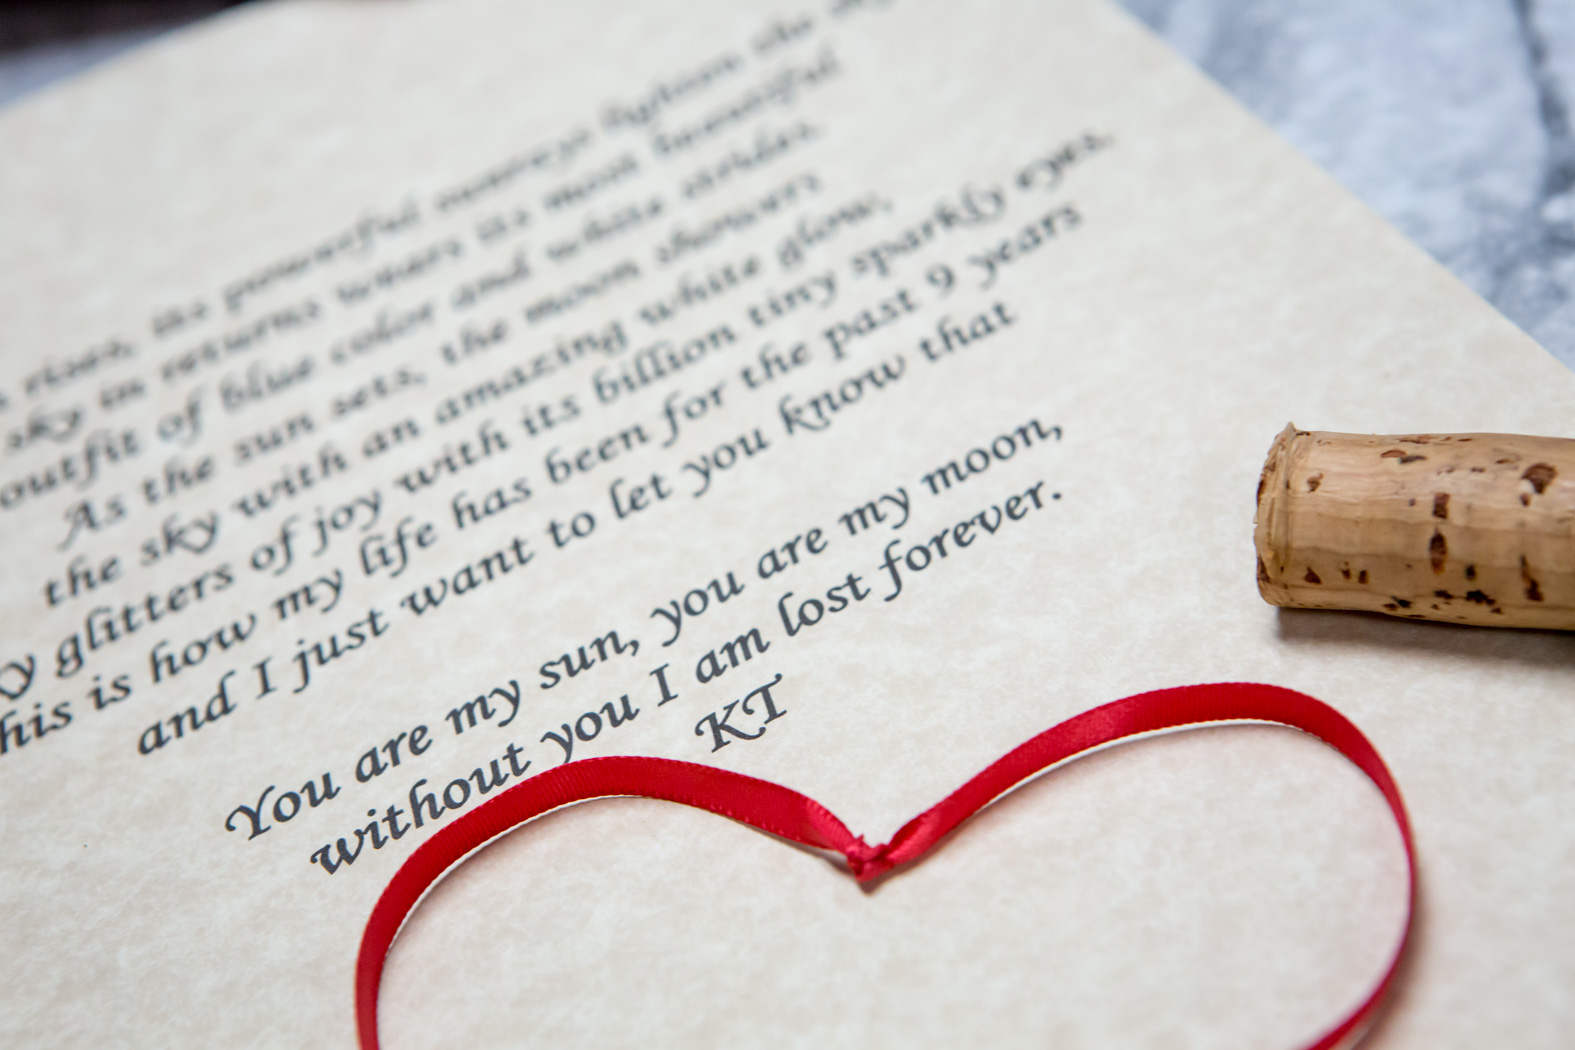 rises, its powerful sunrays lightens the
sky in returns wears its most beautiful
outfit of blue color and white strides.
As the sun sets, the moon showers
the sky with an amazing white glow,
glitters of joy with its billion tiny sparkly eyes.
his is how my life has been for the past 9 years
and I just want to let you know that
You are my sun, you are my moon,
without you I am lost forever.
KT